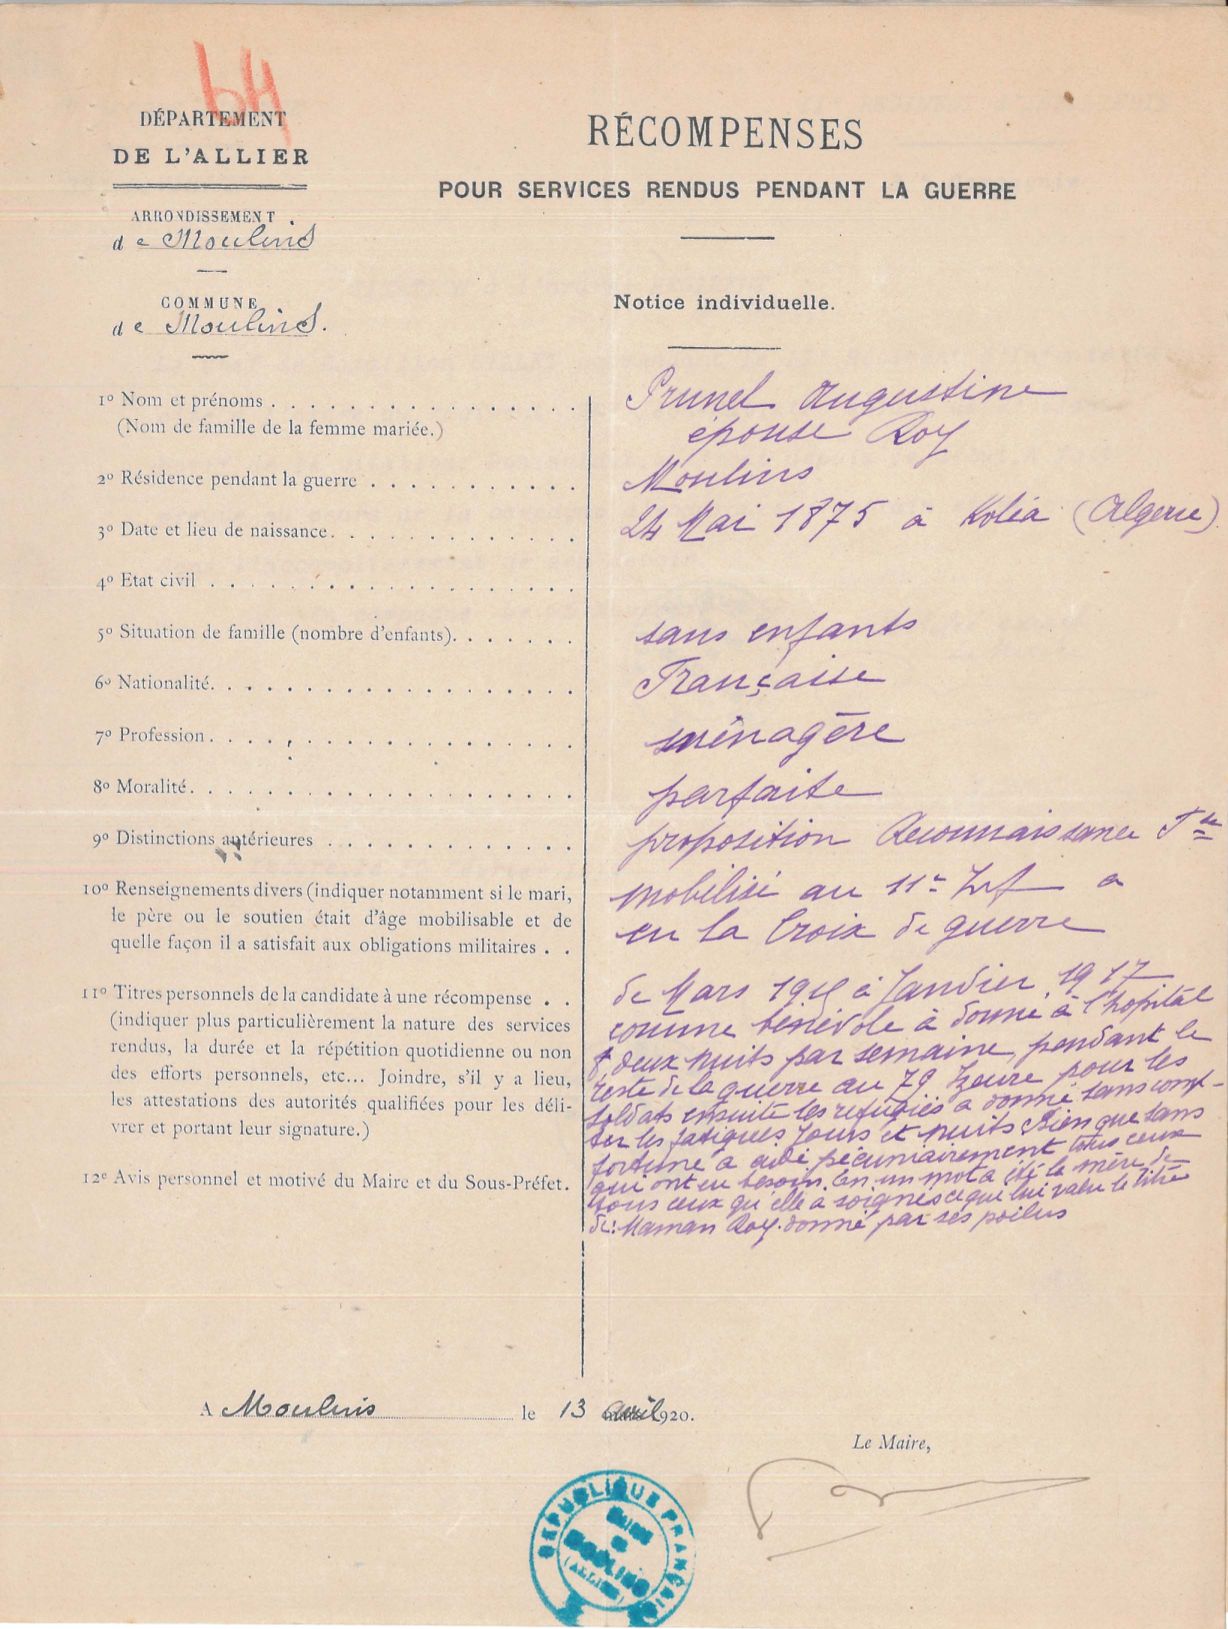 64
DÉPARTEMENT
DE L'ALLIER
ARRONDISSEMENT
de Moulins
COMMUNE
de Moulins.
RÉCOMPENSES
POUR SERVICES RENDUS PENDANT LA GUERRE
Notice individuelle.
1º Nom et prénoms . . . . . . . . . . . . . . . . Prunel Augustine
(Nom de famille de la femme mariée.) épouse Roy
2º Résidence pendant la guerre . . . . . . . . . . . Moulins
3º Date et lieu de naissance. . . . . . . . . . . . . 24 Mai 1875 à Koléa (Algerie)
4º Etat civil . . . . . . . . . . . . . . . . . . .
5º Situation de famille (nombre d'enfants). . . . . . . sans enfants
6º Nationalité. . . . . . . . . . . . . . . . . . . Française
7º Profession . . . . . . . . . . . . . . . . . . . ménagère
8º Moralité. . . . . . . . . . . . . . . . . . . . parfaite
9º Distinctions antérieures . . . . . . . . . . . . . proposition Reconnaissance fse
10º Renseignements divers (indiquer notamment si le mari,
le père ou le soutien était d'âge mobilisable et de
quelle façon il a satisfait aux obligations militaires . .
mobilisé au 11e a
eu la Croix de guerre
11º Titres personnels de la candidate à une récompense . .
(indiquer plus particulièrement la nature des services
rendus, la durée et la répétition quotidienne ou non
des efforts personnels, etc... Joindre, s'il y a lieu,
les attestations des autorités qualifiées pour les déli-
vrer et portant leur signature.)
12e Avis personnel et motivé du Maire et du Sous-Préfet.
de Mars 1915 à Janvier 1917
comme bénévole à donné à l'hopital
deux nuits par semaine, pendant le
reste de la guerre au 79 heure pour les
soldats ensuite les refugiés a donné sans comp-
ter les fatigues jours et nuits Bien que sans
fortune a aidé pécuniairement tous ceux
qui ont eu besoin. En un mot a été la mère de
tous ceux qu'elle a soignés ce que lui valu le titre
de: Maman Roy. donné par ses poilus
A Moulins le 13 avril 1920.
Le Maire,
RÉPUBLIQUE FRANÇAISE
MAIRIE
DE
MOULINS
(ALLIER)